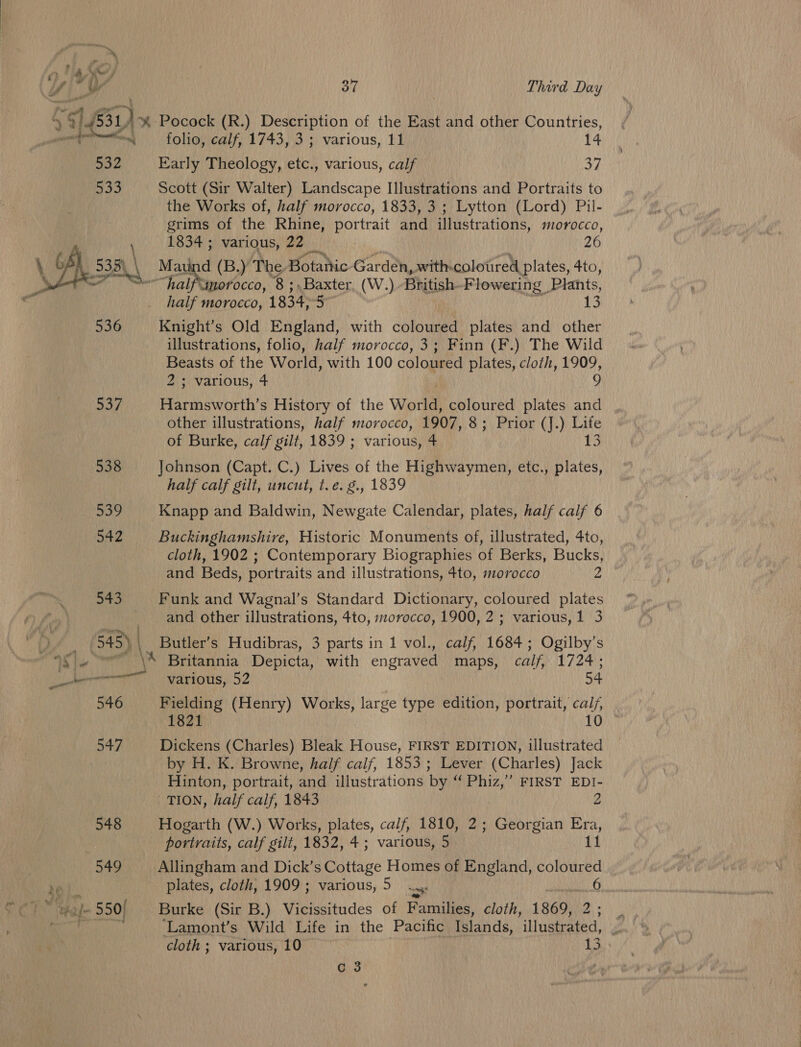 37 Third Day
531 × Pocock (R.) Description of the East and other Countries,
folio, calf, 1743, 3 ; various, 11 14
532 Early Theology, etc., various, calf 37
533 Scott (Sir Walter) Landscape Illustrations and Portraits to
the Works of, half morocco, 1833, 3 ; Lytton (Lord) Pil-
grims of the Rhine, portrait and illustrations, morocco,
1834 ; various, 22 26
535 Maund (B.) The Botanic Garden, with coloured plates, 4to,
half morocco, 8 ; Baxter (W.) British Flowering Plants,
half morocco, 1834, 5 13
536 Knight's Old England, with coloured plates and other
illustrations, folio, half morocco, 3 ; Finn (F.) The Wild
Beasts of the World, with 100 coloured plates, cloth, 1909,
2 ; various, 4 9
537 Harmsworth's History of the World, coloured plates and
other illustrations, half morocco, 1907, 8 ; Prior (J.) Life
of Burke, calf gilt, 1839 ; various, 4 13
538 Johnson (Capt. C.) Lives of the Highwaymen, etc., plates,
half calf gilt, uncut, t.e.g., 1839
539 Knapp and Baldwin, Newgate Calendar, plates, half calf 6
542 Buckinghamshire, Historic Monuments of, illustrated, 4to,
cloth, 1902 ; Contemporary Biographies of Berks, Bucks,
and Beds, portraits and illustrations, 4to, morocco 2
543 Funk and Wagnal's Standard Dictionary, coloured plates
and other illustrations, 4to, morocco, 1900, 2 ; various, 1 3
545 Butler's Hudibras, 3 parts in 1 vol., calf, 1684 ; Ogilby's
Britannia Depicta, with engraved maps, calf, 1724 ;
various, 52 54
546 Fielding (Henry) Works, large type edition, portrait, calf,
1821 10
547 Dickens (Charles) Bleak House, FIRST EDITION, illustrated
by H. K. Browne, half calf, 1853 ; Lever (Charles) Jack
Hinton, portrait, and illustrations by "Phiz," FIRST EDI-
TION, half calf, 1843 2
548 Hogarth (W.) Works, plates, calf, 1810, 2 ; Georgian Era,
portraits, calf gilt, 1832, 4 ; various, 5 11
549 Allingham and Dick's Cottage Homes of England, coloured
plates, cloth, 1909 ; various, 5 6
550 Burke (Sir B.) Vicissitudes of Families, cloth, 1869, 2 ;
Lamont's Wild Life in the Pacific Islands, illustrated,
cloth ; various, 10 13
C 3